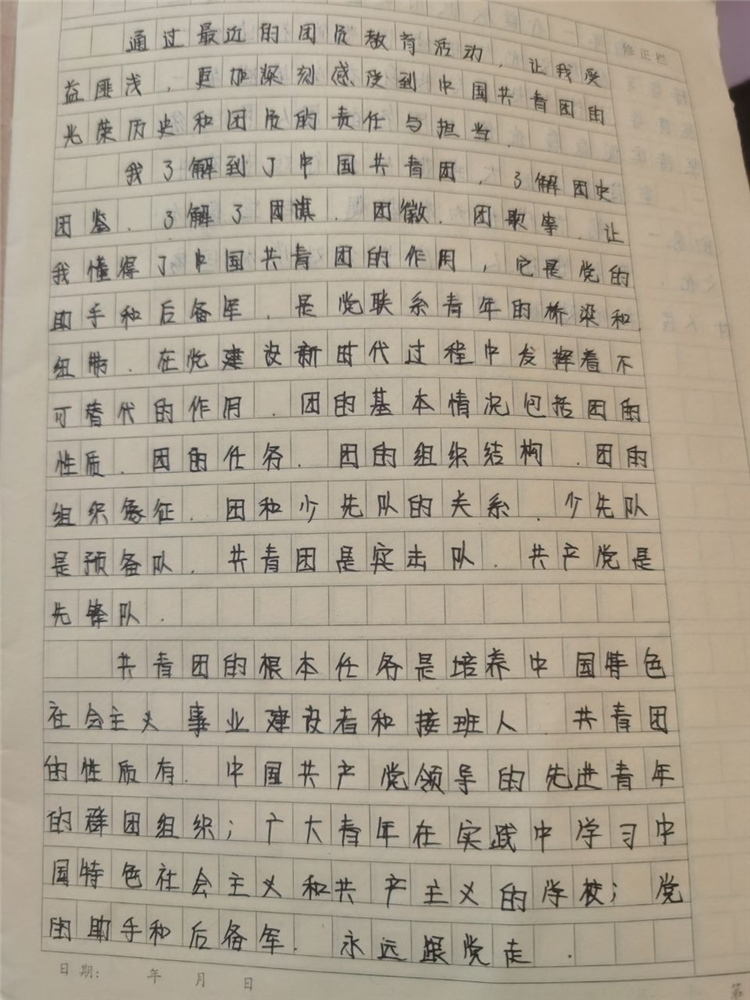 修正栏
通过最近的团员教育活动，让我受
益匪浅，更加深刻感受到中国共青团的
光荣历史和团员的责任与担当.
我了解到了中国共青团，了解团史
团鉴、了解了团旗、团徽、团歌事、让
我懂得了中国共青团的作用，它是党的
助手和后备军、是党联系青年的桥梁和
纽带、在党建设新时代过程中发挥着不
可替代的作用、团的基本情况包括团的
性质、团的任务、团的组织结构、团的
组织象征、团和少先队的关系、少先队
是预备队、共青团是突击队、共产党是
先锋队.
共青团的根本任务是培养中国特色
社会主义事业建设者和接班人 共青团
的性质有、中国共产党领导的先进青年
的群团组织；广大青年在实践中学习中
国特色社会主义和共产主义的学校；党
的助手和后备军. 永远跟党走.
日期: 年 月 日
第